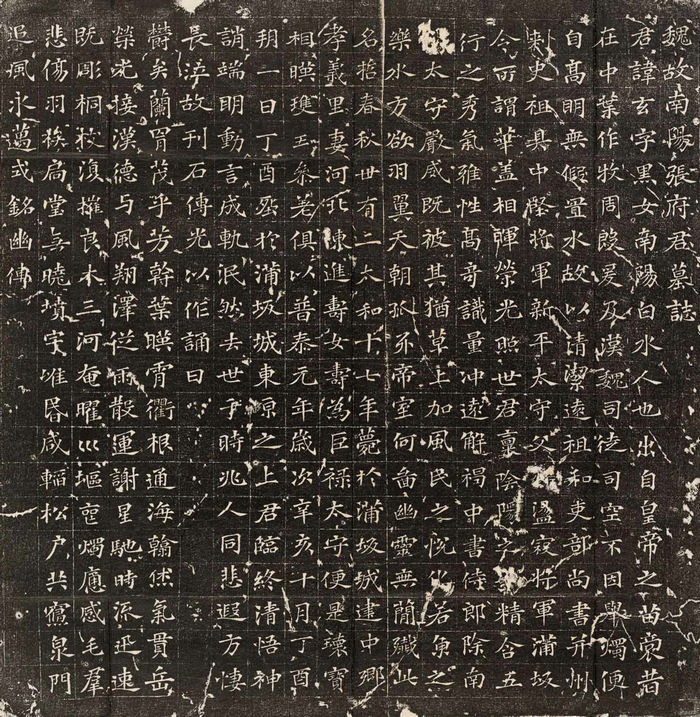 魏故南陽張府君墓誌
君諱玄字黑女南陽白水人也出自皇帝之苗裔昔
在中葉作牧周殷爰及漢魏司徒司空不因舉燭便
自高明無假置水故以清潔遠祖和吏部尚書并州
刺史祖具中堅將軍新平太守父盪寇將軍蒲坂
令所謂華蓋相暉榮光照世君稟陰陽之精含五
行之秀氣雅性高奇識量沖遠解褐中書侍郎除南
太守嚴威既被其猶草上加風民之悅化若魚之
樂水方欲羽翼天朝抓牙帝室何啚幽靈無簡殲此
名哲春秋世有二太和十七年薨於蒲坂城建中鄉
孝義里妻河北陳進壽女壽為巨祿太守便是瓌寶
相暎瓊玉參差俱以普泰元年歲次辛亥十月丁酉
朔一日丁酉塟於蒲坂城東原之上君臨終清悟神
誚端明動言成軌泯然去世于時兆人同悲遐方悽
長泣故刊石傳光以作誦曰
鬱矣蘭胄茂乎芳幹葉暎霄衢根通海翰休氣貫岳
榮光接漢德与風翔澤從雨散運謝星馳時流迅速
既彫桐枝復摧良木三河奄曜巛塸喪燭痛感毛羣
悲傷羽族扃堂無曉墳宇唯昬咸輼松戶共寢泉門
追風永邁式銘幽傳